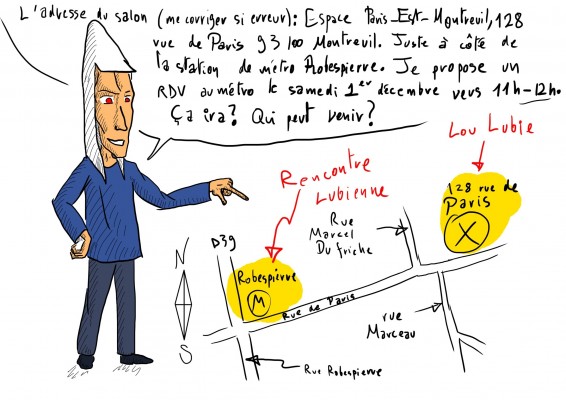 L'adresse du salon (me corriger si erreur): Espace Paris-Est-Montreuil, 128
rue de Paris 93100 Montreuil. Juste à côté de
la station de métro Robespierre. Je propose un
RDV au métro le samedi 1er décembre vers 11h-12h.
Ça ira? Qui peut venir?
Lou Lubie
Rencontre
Lubienne
128 rue de
Paris
X
Rue
Marcel
Du friche
D39
N
Robespierre
M
Rue de Paris
rue
Marceau
S
Rue Robespierre